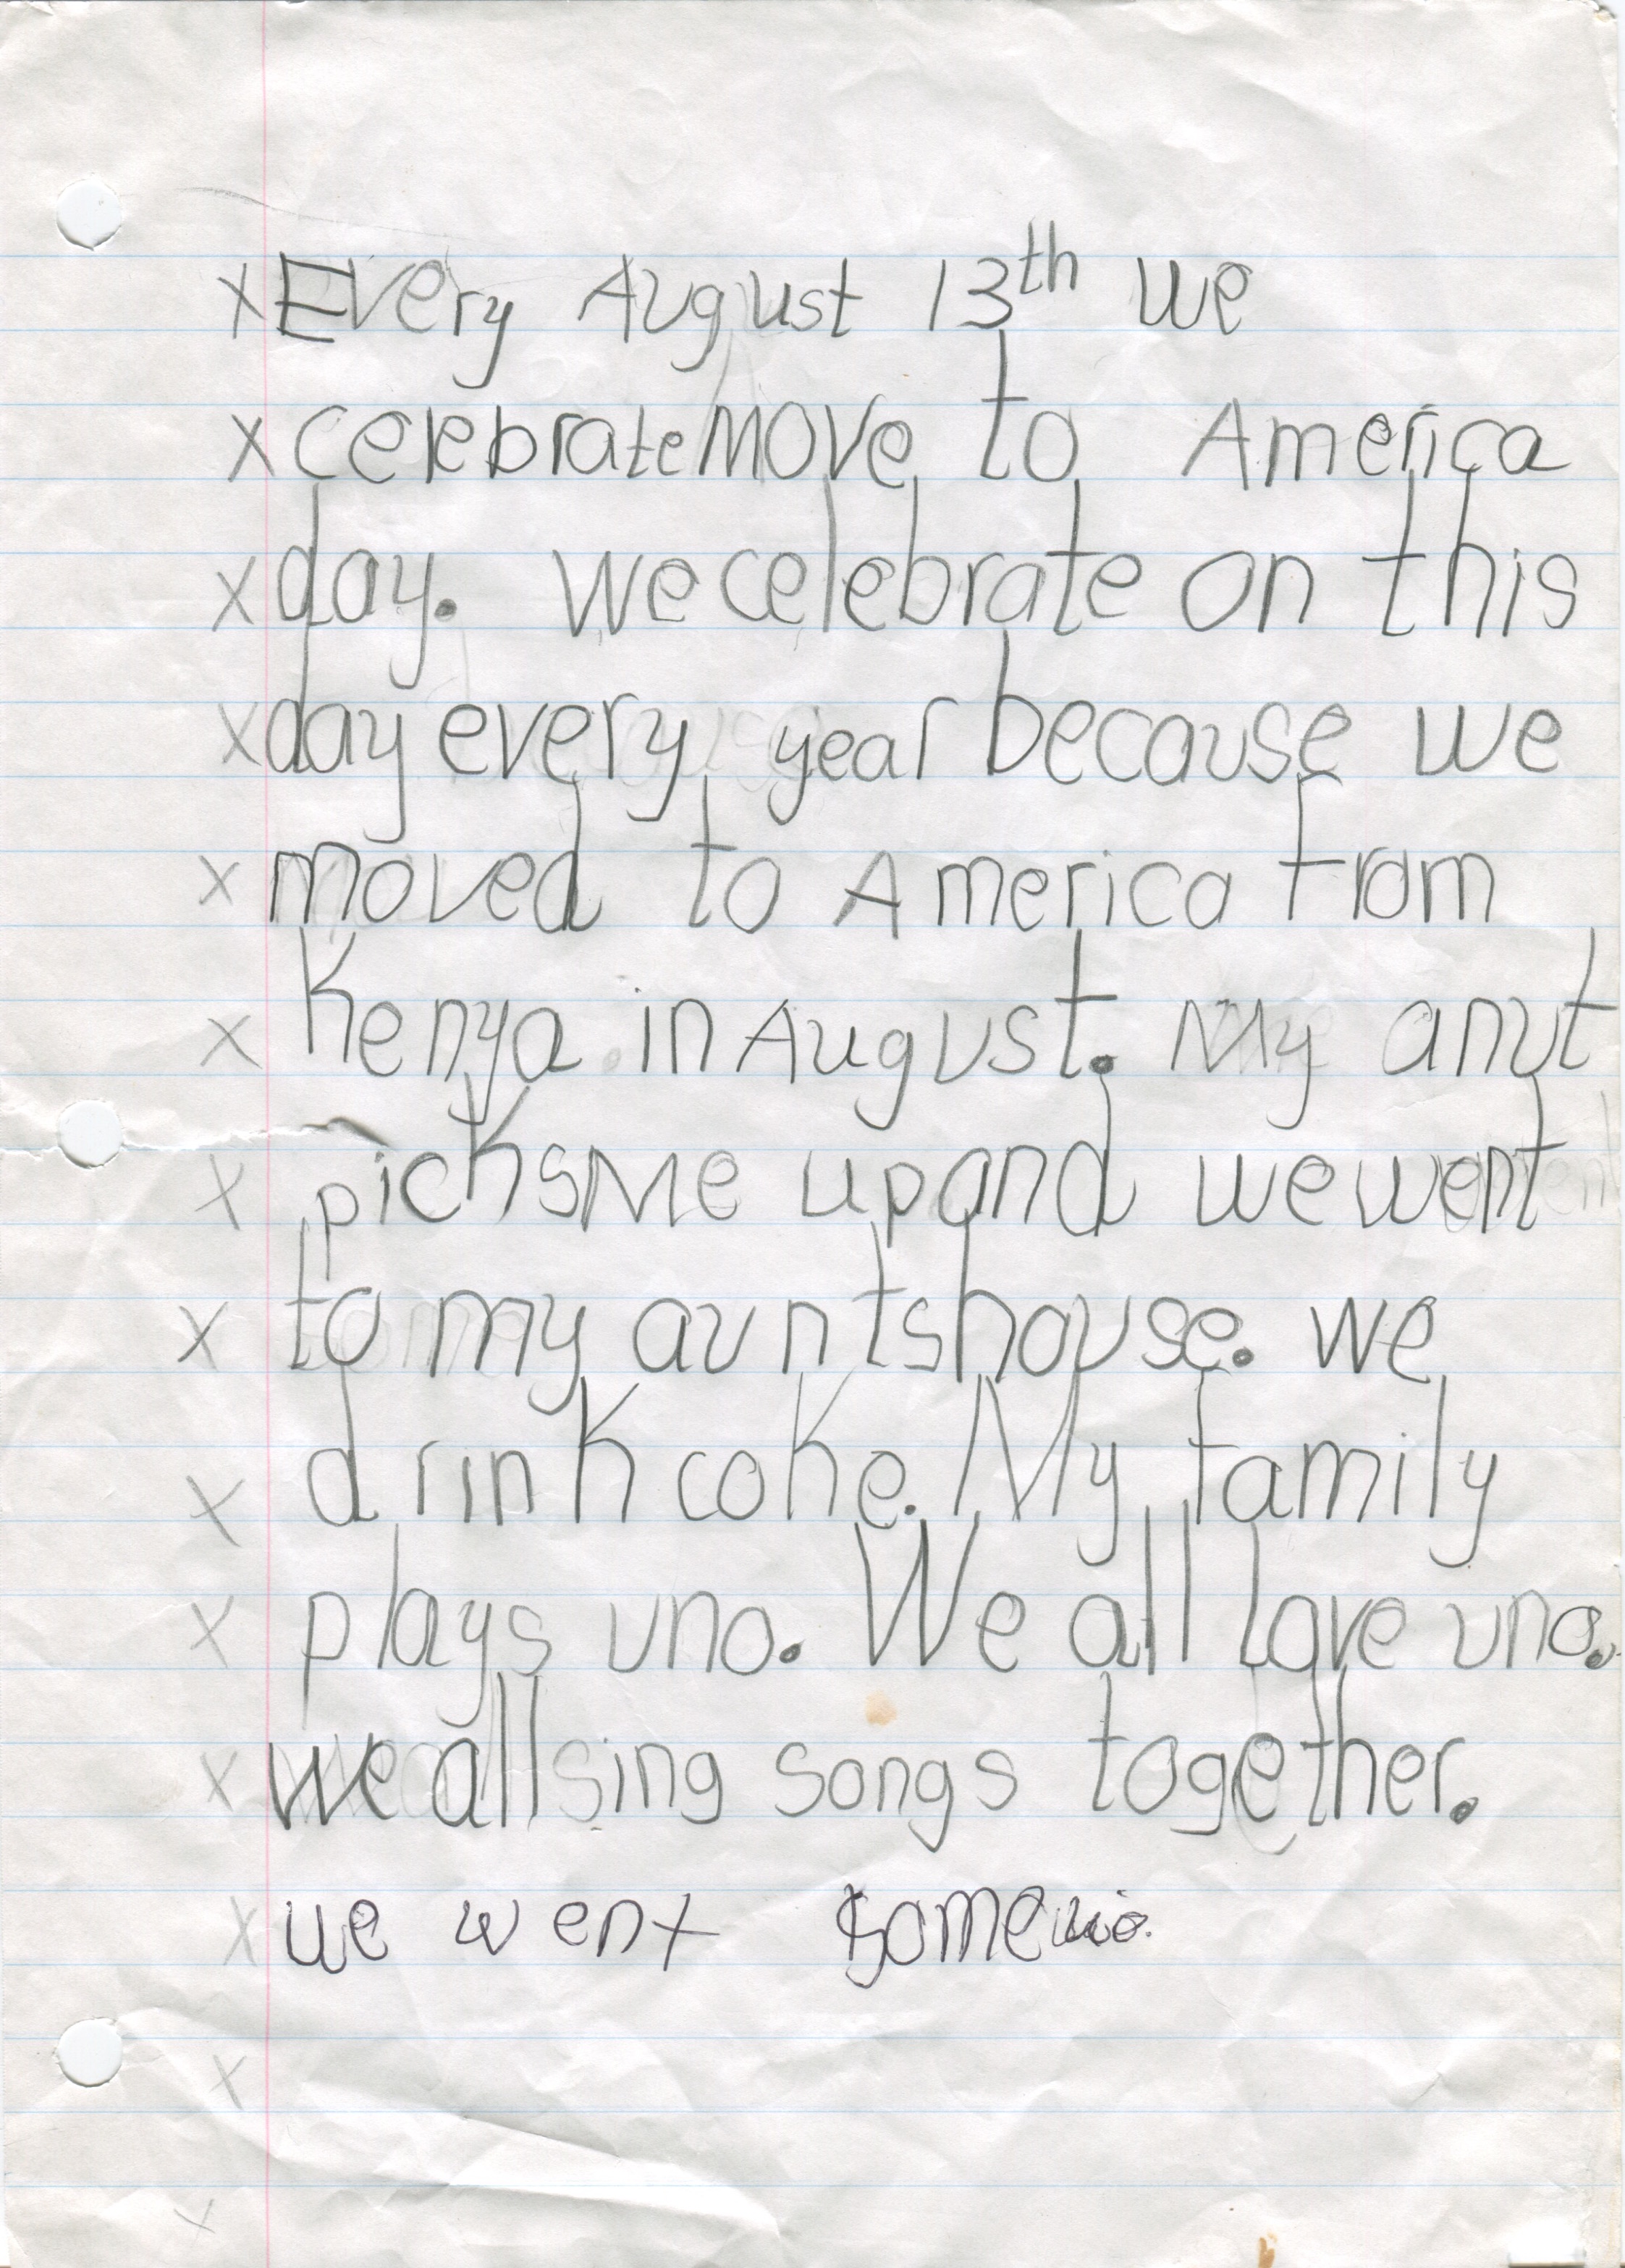 x Every August 13th we
x celebrate move to America
x day. we celebrate on this
x day every year because we
x moved to America from
x Kenya in August. My anut
x picks Me up and we went
x to my aunts house. we
x drink coke. My family
x plays uno. We all love uno.
x we all sing songs together.
x we went
x
x